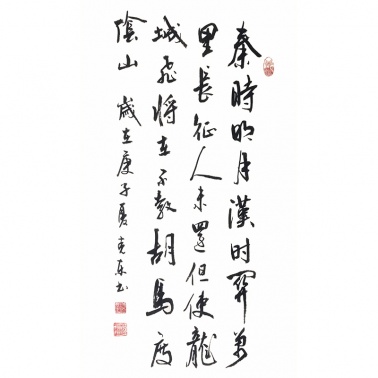 秦時明月漢時關萬
里長征人未還但使龍
城飛將在不教胡馬度
陰山 歲在庚子夏克東书